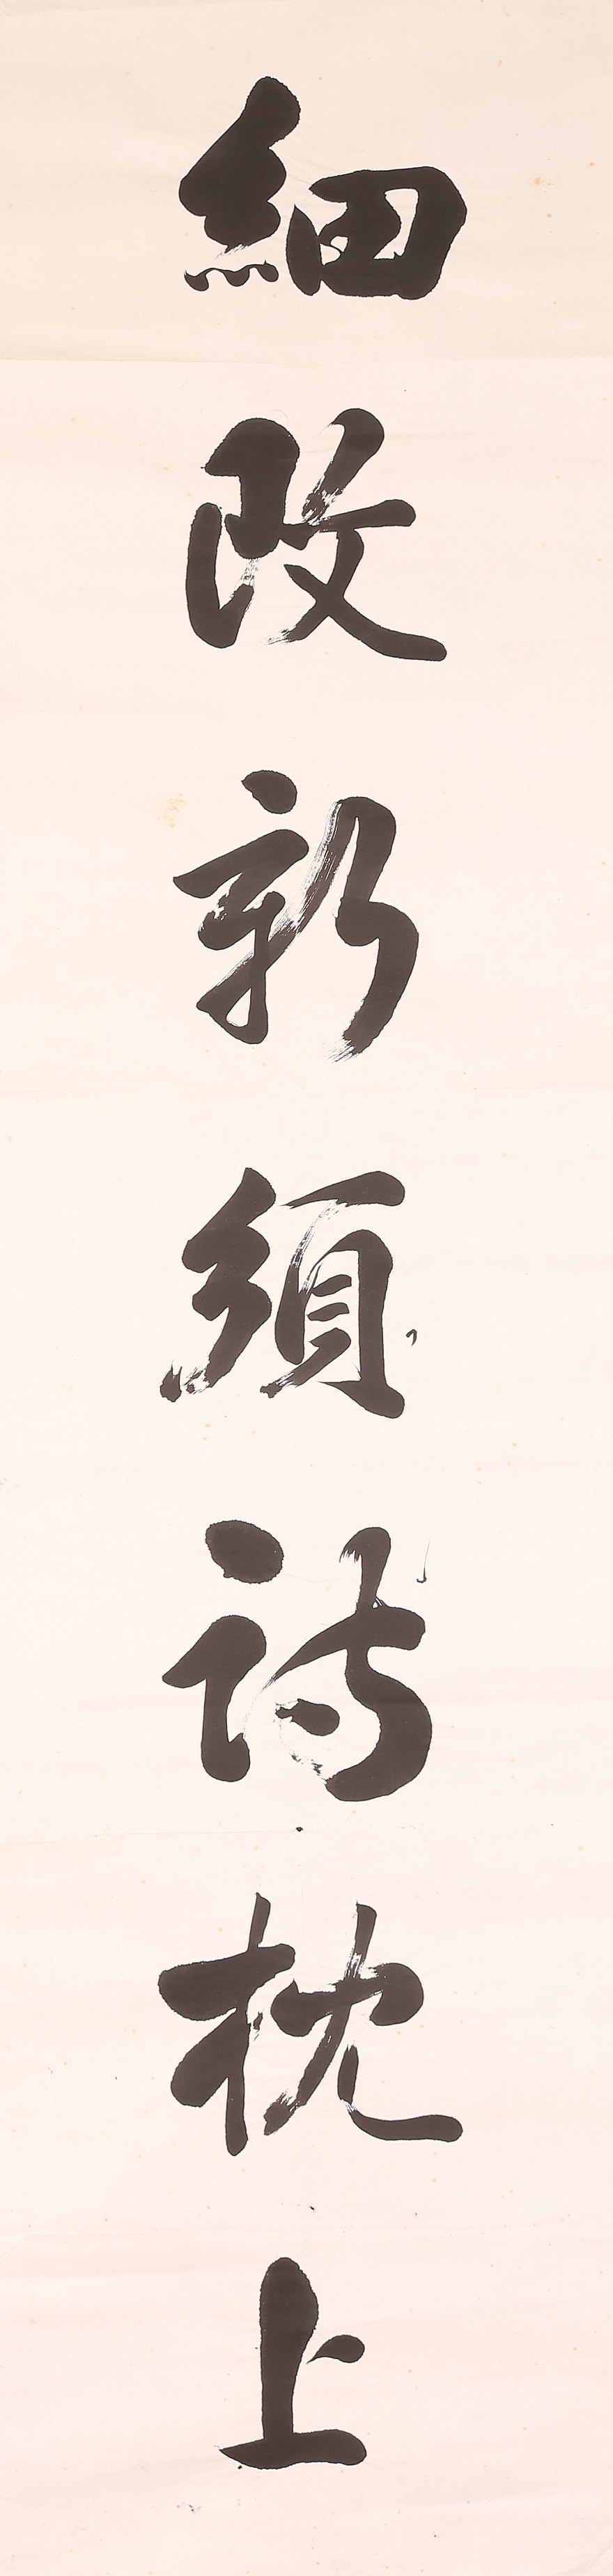 細改新須詩枕上